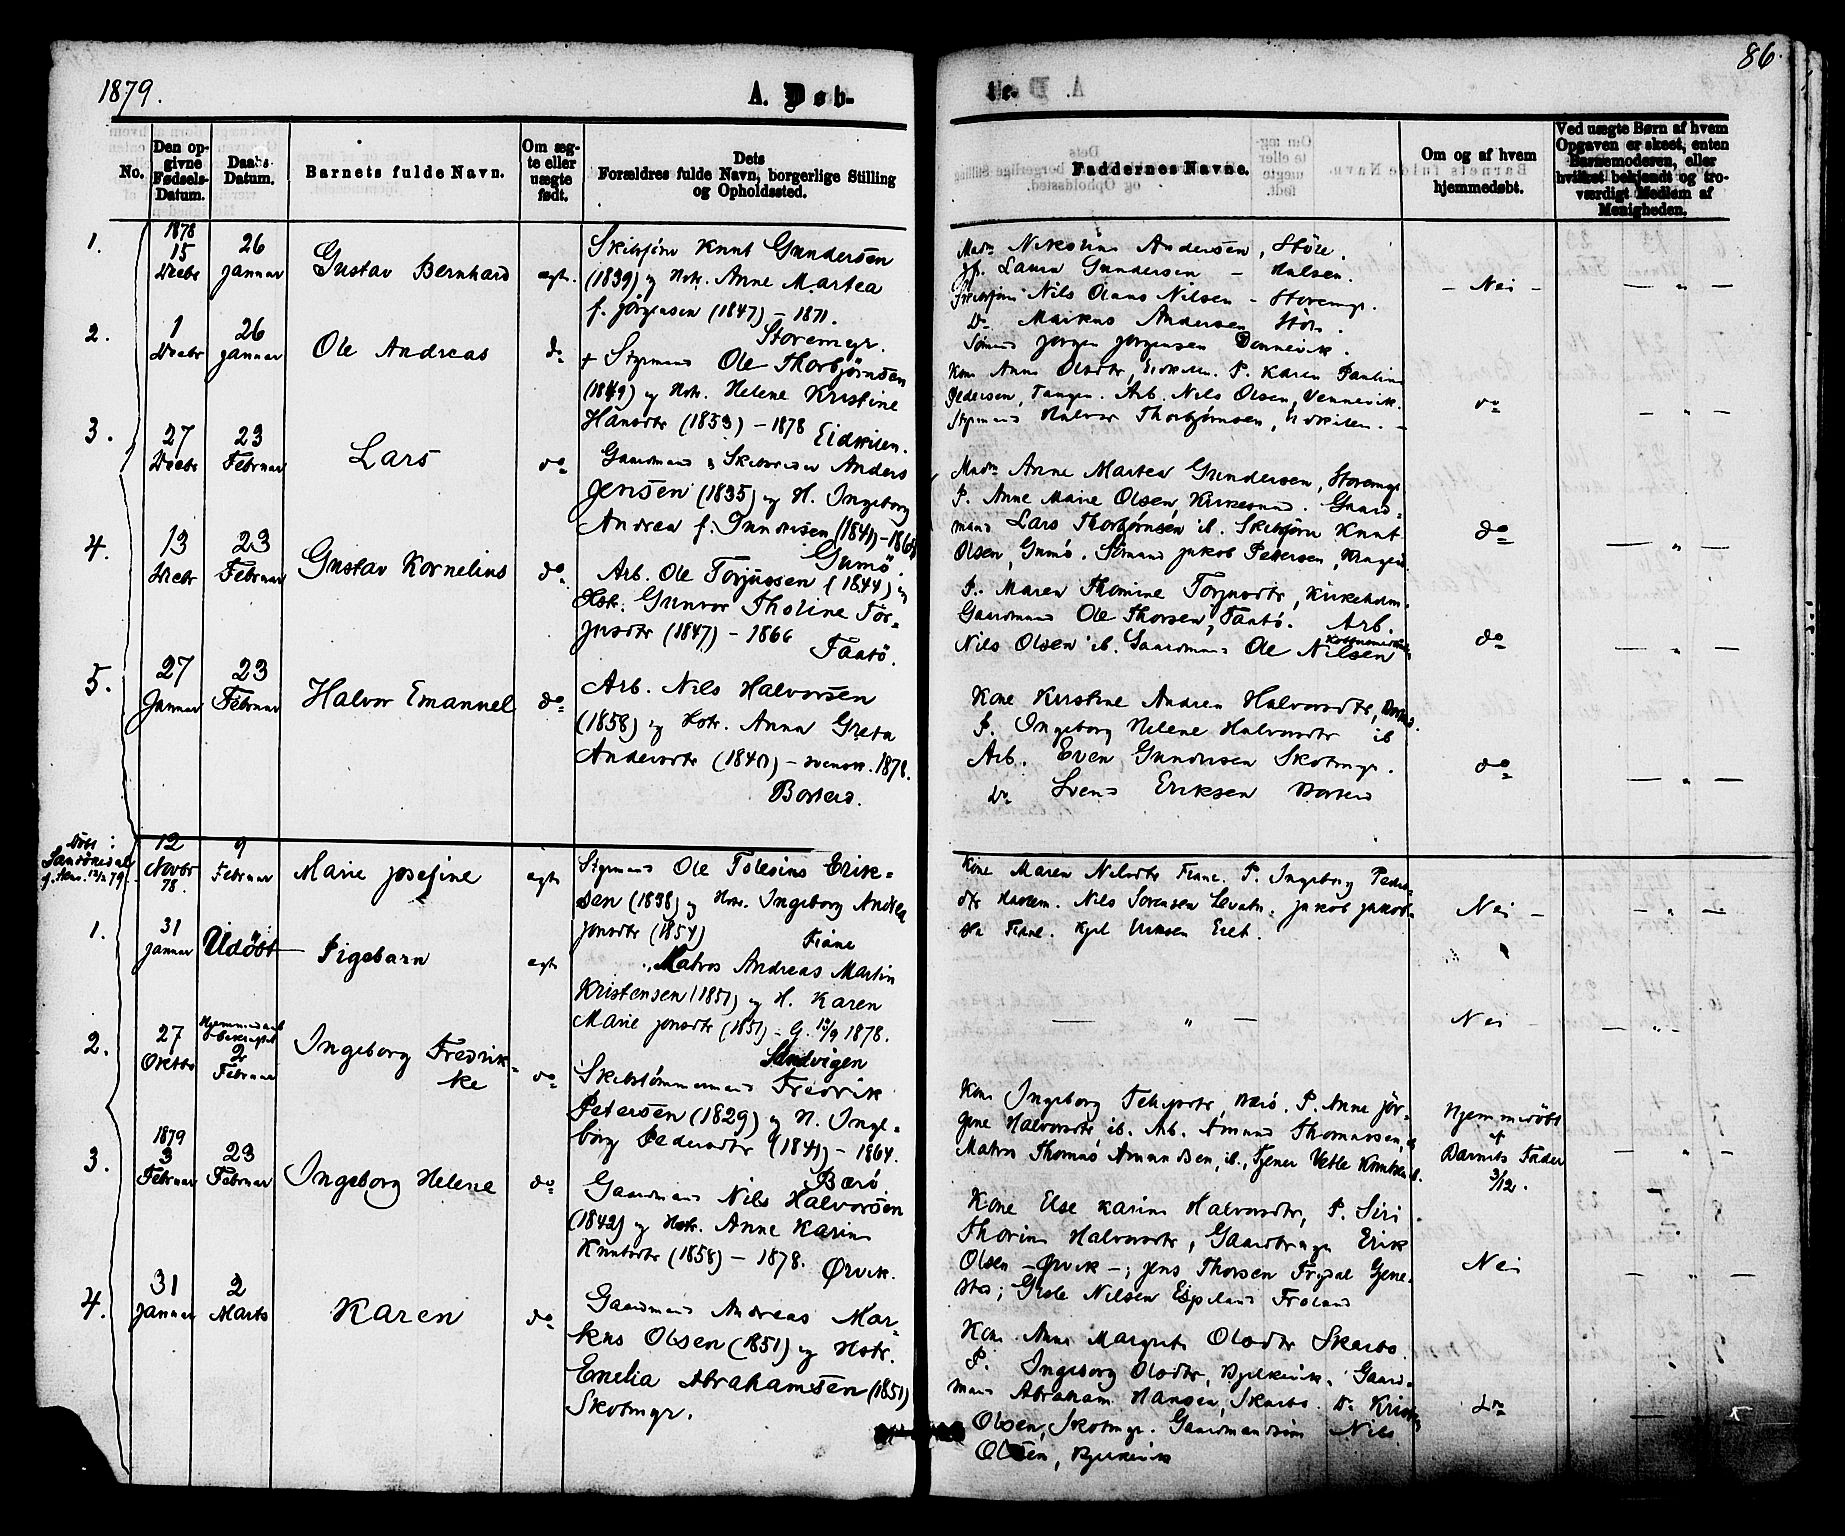 1879.
A. Døb-
te.
86.
No.
Den opgivne Fødsels-Datum.
Daabs-Datum.
Barnets fulde Navn.
Om ægte eller uægte født.
Dets Forældres fulde Navn, borgerlige Stilling og Opholdssted.
Faddernes Navne.
Om og af hvem hjemmedøbt.
Ved uægte Børn af hvem Opgaven er skeet, enten Barnemoderen, eller hvilket bekjendt og troværdigt Medlem af Menigheden.
1.
1878
15
Decbr
26
Januar
Gustav Bernhard
ægt.
Skibsfører Knut Gundersen
(1839) og Hstr. Anne Martea
f. Jørgensen (1847) – 1871.
Storemyr.
Andersen, Støle.
Laura Gundersen –
Nils Olaus Nilsen – Storemyr.
Do Markus Andersen
Jørgen Jørgensen
– Nei –
2.
1
Decbr
26
Januar
Ole Andreas
do
+ Styrmand Ole Thorbjørnsen
(1849) og Hstr. Helene Kristine
Hansdtr (1853) – 1878
Eidkilen.
Kone Anne Olsdtr, Eidkilen. P. Karen Pauline
Pedersen, Tangen. Arb. Nils Olsen, Vennevik.
Styrmand Halvor Thorbjørnsen, Eidkilen.
do
3.
27
Decbr
23
Februar
Lars
do
Gaardmand & Skibsreder Anders
Jensen (1835) og H. Ingeborg
Andrea f. Gundersen (1841) – 1864
Gumø.
Madm Anne Martea Gundersen, Storemyr
P. Anne Marie Olsen, Kirkesund. Gaard-
mand Lars Thorbjørnsen ib. Skibsfører Knut
Olsen, Gumø. Styrmand Jakob Petersen, Kragerø.
do
4.
13
Decbr
23
Februar
Gustav Kornelius
do
Arb. Ole Torjussen (1844) og
Hstr. Gunvor Tholine Tor-
jusdtr (1847) – 1866
Taatø.
P. Maren Thomine Torjusdtr, Kirkeholm.
Gaardmand Ole Thorsen, Taatø. Arb.
Nils Olsen ib. Gaardmand Ole Nilsen
do
5.
27
Januar
23
Februar
Halvor Emanuel
do
Arb. Nils Halvorsen
(1858) og Hstr. Anna Greta
Andersdtr – svensk. 1878.
Borterø.
Kone Kirstine Andrea Halvorsdtr,
P. Ingeborg Helene Halvorsdtr ib
Arb. Even Gundersen Skotmyr.
Do Svend Eriksen
do
Døbt:
Sandøkedal
12
Novbr
78.
9
Februar
Marie Josefine
ægt
Styrmand Ole Tolesius Erik-
sen (1838) og Hstr. Ingeborg Andrea
Jonsdtr (1854)
Fiane
Kone Maren Nilsdtr Fiane. P. Ingeborg Peders-
dtr Haslem. Nils Sørensen Jakob Jakob-
sen Fiane. Kjel Eriksen Eiet.
Nei –
1.
31
Januar
Udøbt
Pigebarn
ægt
Matros Andreas Martin
Kristensen (1851) og H. Karen
Marie Jonsdtr (1851) – G. 1878.
Sandvigen
Nei –
2.
27
Oktbr
2
Februar
Ingeborg Fredrik-
ke
do
Skibstømmermand Fredrik
Petersen (1829) og H. Inge-
borg Pedersdtr (1841) – 1864.
Bærø
Kone Ingeborg Bærø. P. Anne Jør-
gine Halvorsdtr ib. Arb. Amund Thomassen,
Matros Thomas Amundsen, ib., Tjener Vetle Knutsen ib.
Hjemmedøbt
af
Barnets Fader
3/12.
3.
1879
3
Februar
23
Februar
Ingeborg Helene
do
Gaardmand Nils Halvorsen
(1842) og Hstr. Anne Karine
Knutsdtr (1858) – 1878.
Ørvik.
Kone Else Karine Halvorsdtr, P. Siri
Thorine Halvorsdtr, Gaardbruger Erik
Olsen – Ørvik –; Jens Thorsen
Gisle Nilsen Espeland Froland
Nei
4.
31
Januar
2
Marts
Karen
do
Gaardmand Andreas Mar-
kus Olsen (1851) og Hstr.
Emelia Abrahamsen (1851)
Skotmyr.
Kone Anne Margrete Olsdtr Skarbo.
P. Ingeborg Olsdtr, Bjelkevik. Gaard-
mand Abraham Hansen, Skarbo. Do
Olsen, Skotmyr. Gaardmandsøn Nils
Olsen, Bjelkevik
do